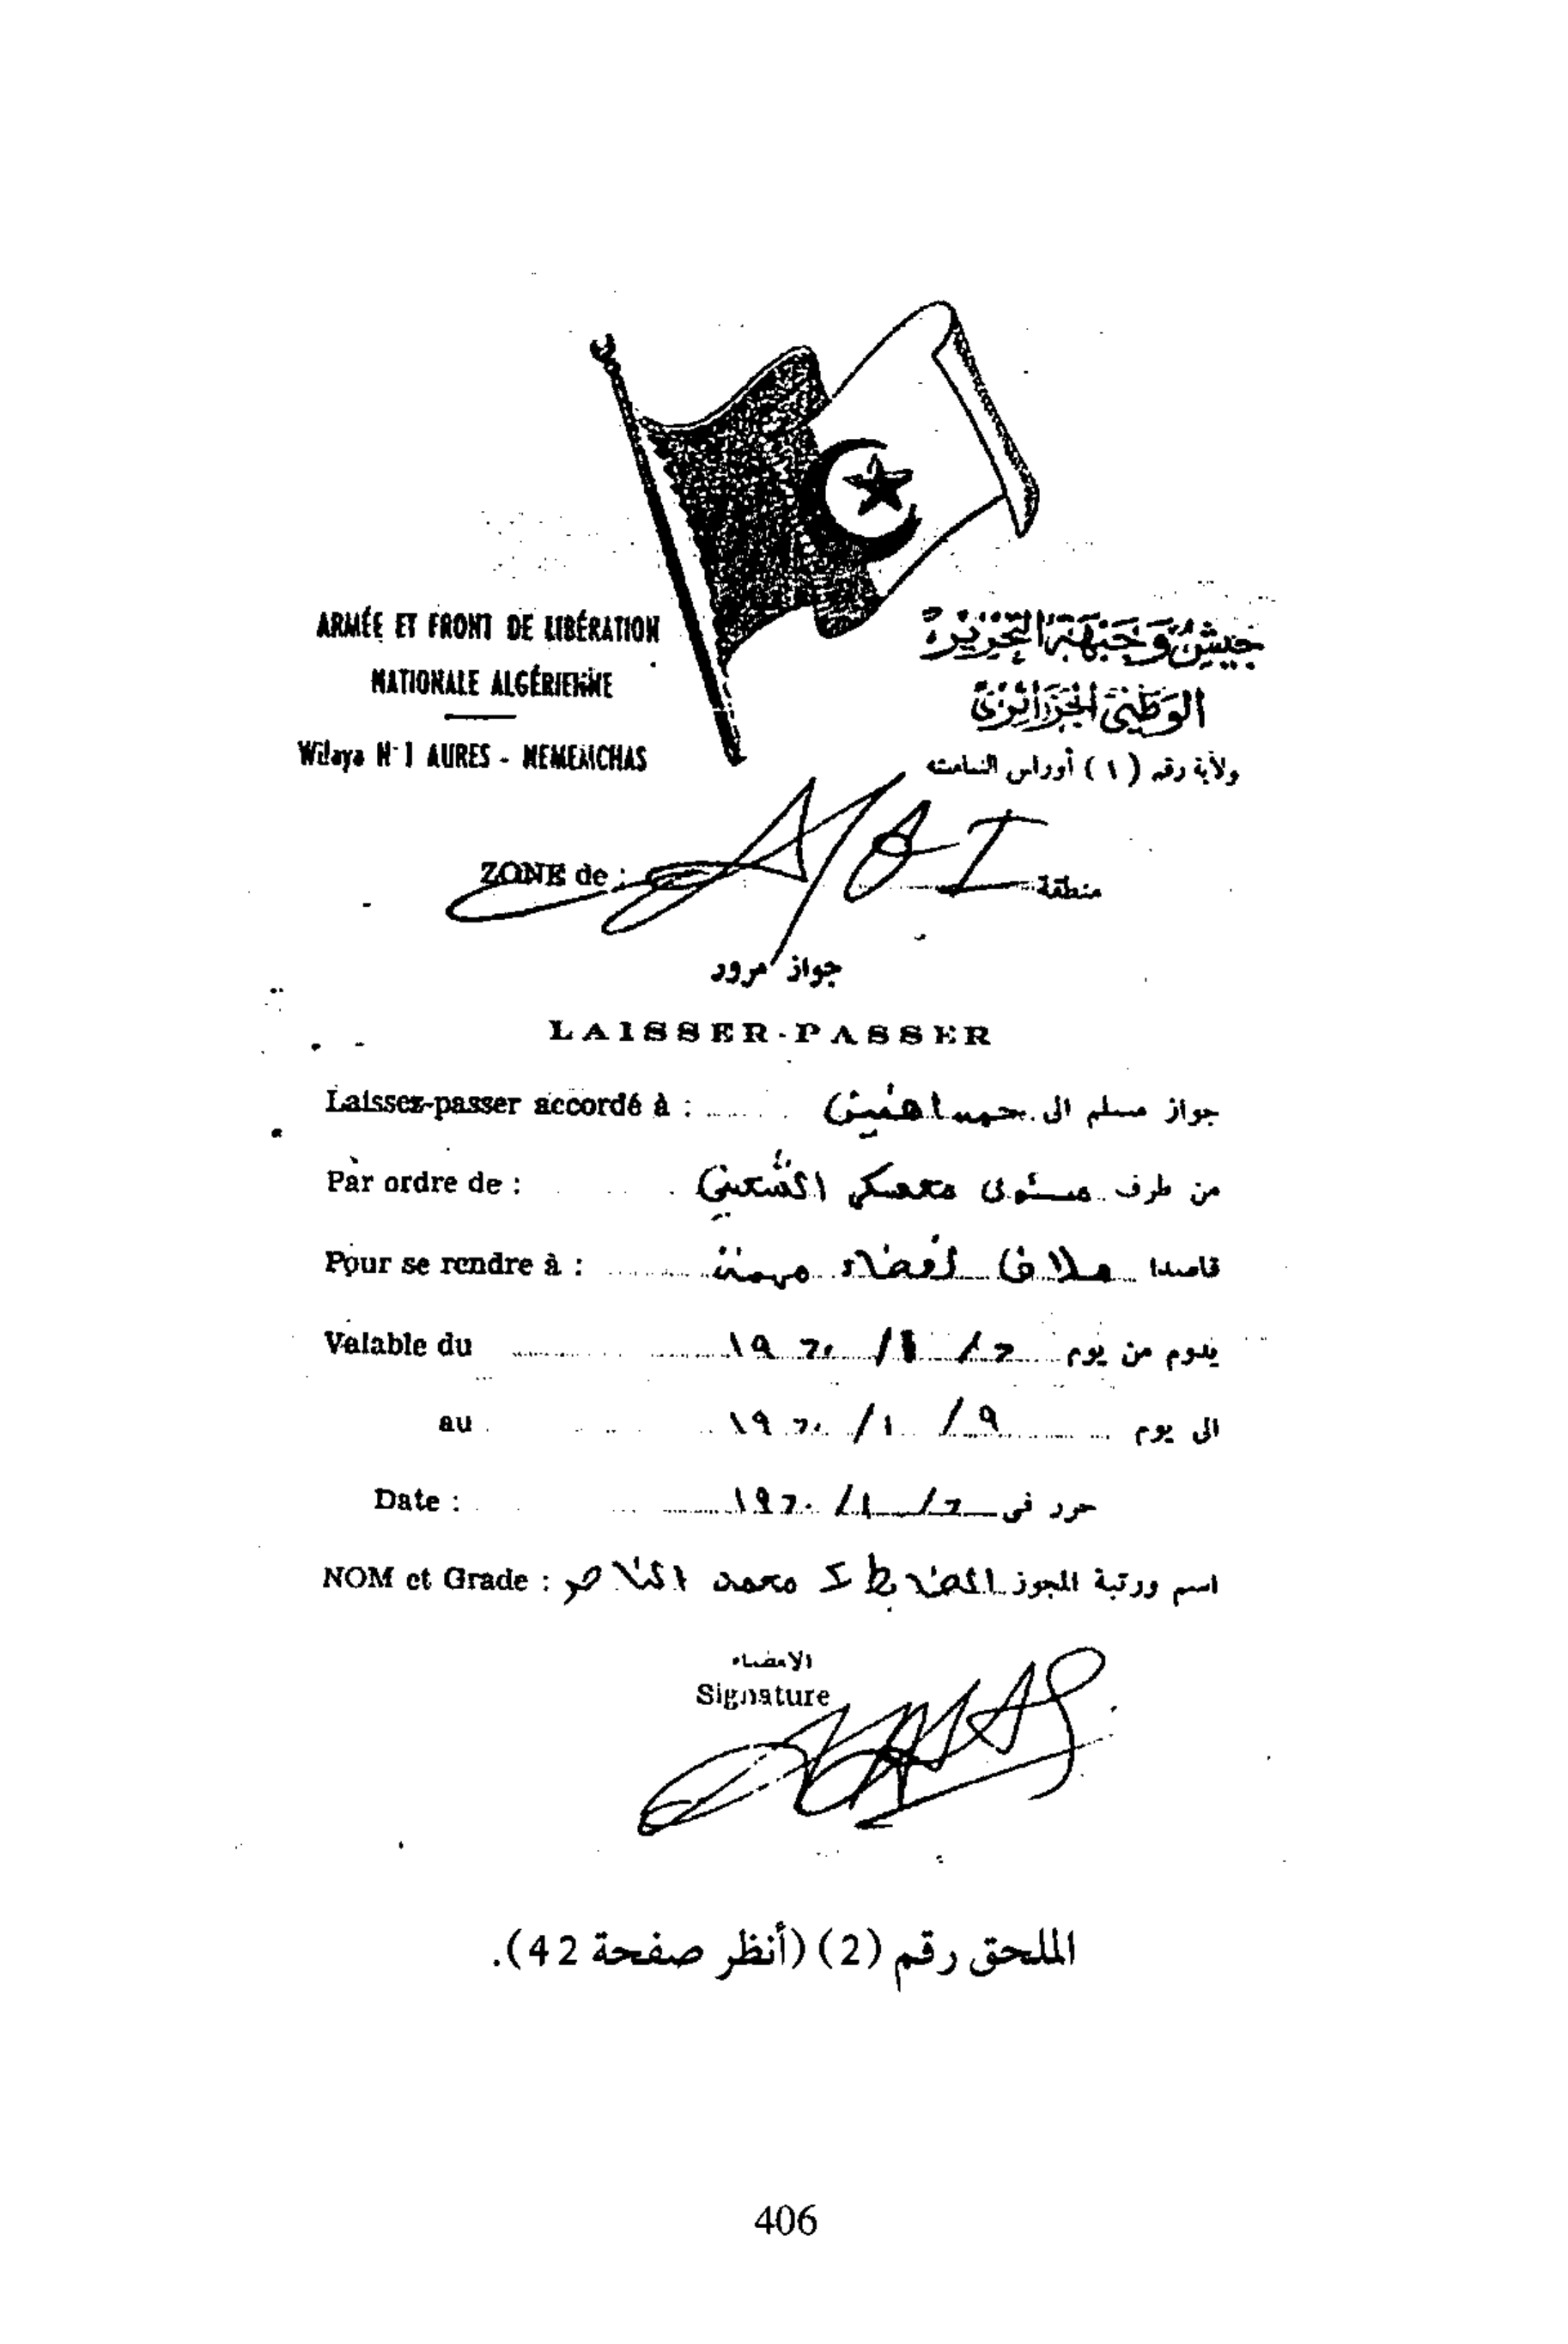 ARMÉE ET FRONT DE LIBÉRATION
NATIONALE ALGÉRIENNE
Wilaya N° 1 AURES - NEMEMCHAS
جيش وجبهة التحرير
الوطني الجزائري
ولاية رقم (١) أوراس النمامشه
ZONE de : منطقة
جواز مرور
LAISSER-PASSER
Laissez-passer accordé à : جواز مسلم الى
Par ordre de : من طرف
Pour se rendre à : قاصدا مهمة
Valable du يدوم من يوم ٦/١/١٩٦٠
au الى يوم ٩/١/١٩٦٠
Date : حرر في ٦/١/١٩٦٠
NOM et Grade : اسم ورتبة المجوز محمد
الامضاء
Signature
الملحق رقم (2) (أنظر صفحة 42).
406